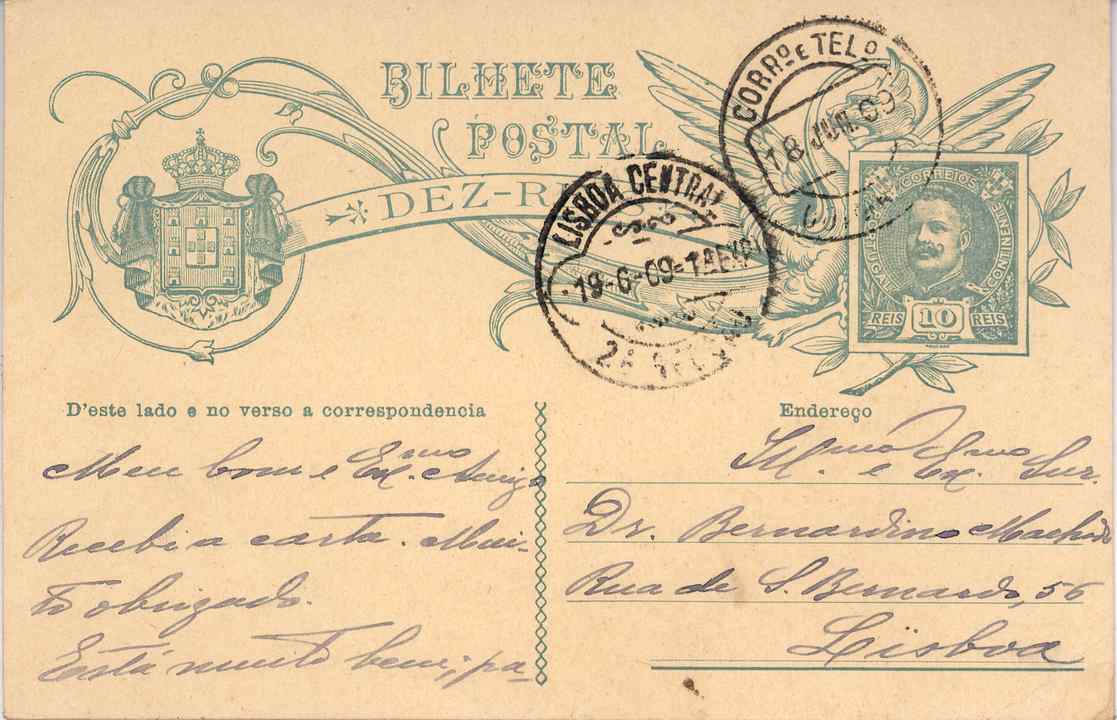 BILHETE
POSTAL
DEZ-R
CORRO E TELO
18 JUN. 09
LISBOA CENTRAL
19-6-09-1A EXP
2A SEC
CORREIOS
PORTUGAL
CONTINENTE
REIS 10 REIS
D'este lado e no verso a correspondencia
Meu bom e Ex.mo Amigo
Recebi a carta. Mui-
to obrigado.
Está muito bem; pa-
Endereço
Ill.mo e Ex.mo Snr.
Dr. Bernardino Machado
Rua de S. Bernardo, 56
Lisboa